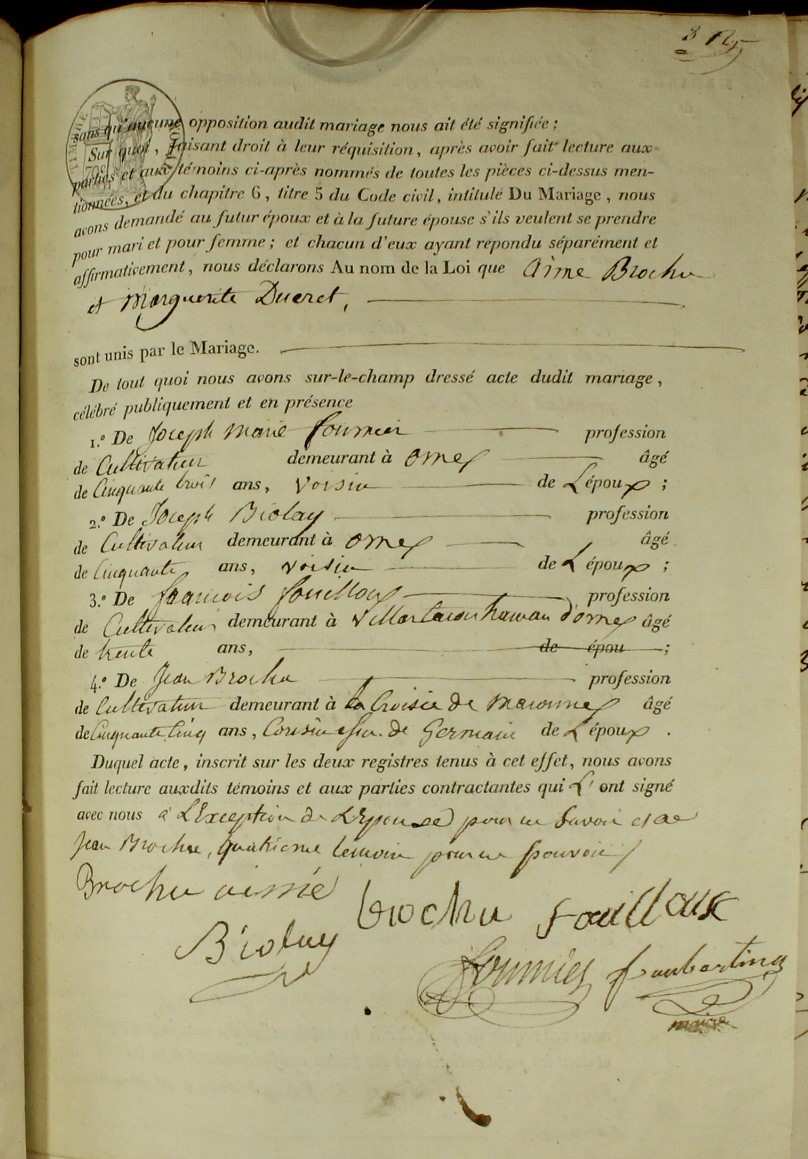 8 125
sans qu'aucune opposition audit mariage nous ait été signifiée ;
Sur quoi, faisant droit à leur réquisition, après avoir fait lecture aux
parties et aux témoins ci-après nommés de toutes les pièces ci-dessus men-
tionnées, et du chapitre 6, titre 5 du Code civil, intitulé Du Mariage, nous
avons demandé au futur époux et à la future épouse s'ils veulent se prendre
pour mari et pour femme ; et chacun d'eux ayant répondu séparément et
affirmativement, nous déclarons Au nom de la Loi que aimé Brochu
et Marguerite Ducret,
sont unis par le Mariage.
De tout quoi nous avons sur-le-champ dressé acte dudit mariage,
célébré publiquement et en présence
1.º De Joseph Marie fournier profession
de Cultivateur demeurant à ornex âgé
de Cinquante trois ans, voisin de L'époux ;
2.º De Joseph Biolay profession
de Cultivateur demeurant à ornex âgé
de Cinquante ans, voisin de L'époux ;
3.º De françois fouilloux profession
de Cultivateur demeurant à hameau d'ornex âgé
de trente ans, de épou ;
4.º De Jean Brochu profession
de Cultivateur demeurant à la Croisée de âgé
de Cinquante Cinq ans, Cousin de Germain de L'époux.
Duquel acte, inscrit sur les deux registres tenus à cet effet, nous avons
fait lecture auxdits témoins et aux parties contractantes qui L' ont signé
avec nous à L'Exception de L'Epouse pour ne Savoir et de
Jean Brochu, quatrieme temoin pour ne pouvoir
Brochu aimé
brochu fouilloux
Biolay
fournier
maire